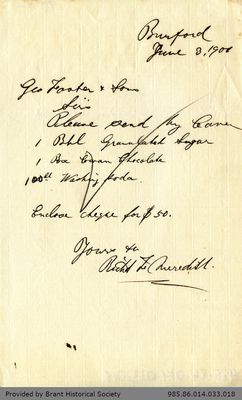 Burford
June 3, 1900
Geo Foster & Sons
Sirs
Please send by Carrier
1 Bbl Granulated Sugar
1 Box Cowan Chocolate
100# Washing Soda
Enclose cheque for $50.
Yours &c
Meredith
Provided by Brant Historical Society
985.86.014.033.018